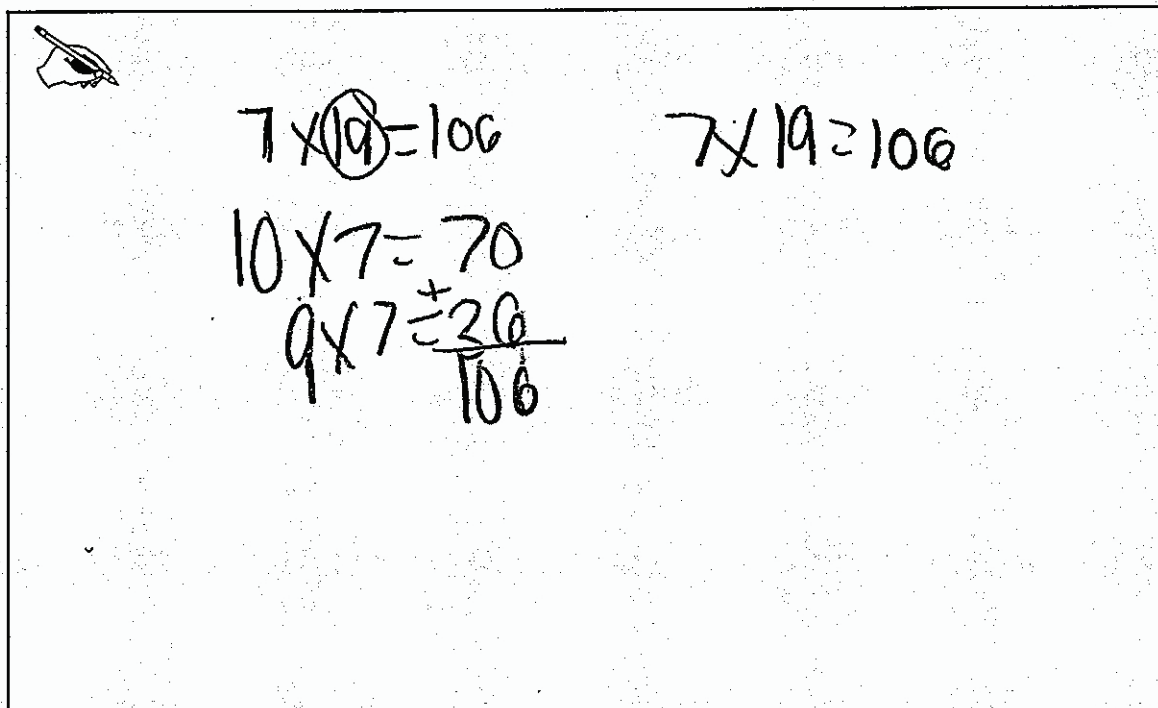 7 x 19 = 106
7 x 19 = 106
10 x 7 = 70
+
9 x 7 = 36
106